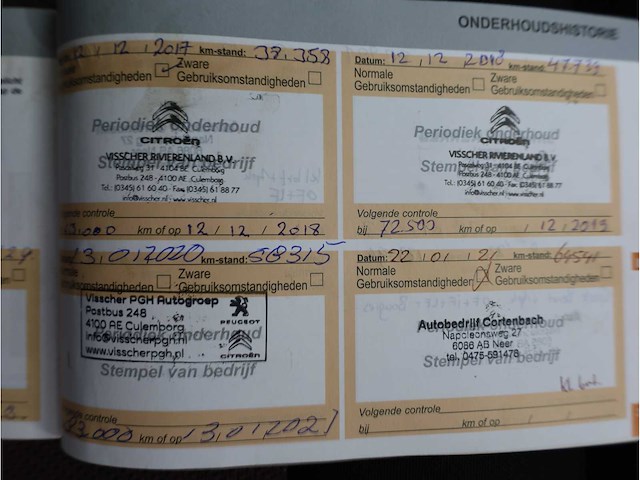 ONDERHOUDSHISTORIE
12 / 12 / 2017 km-stand: 38.358
Zware
omstandigheden Gebruiksomstandigheden
Periodiek onderhoud
CITROËN
VISSCHER RIVIERENLAND B.V.
Plaatweg 31 - 4104 BC Culemborg
Postbus 248 - 4100 AE Culemborg
Tel.: (0345) 61 60 40 - Fax (0345) 61 88 77
info@visscher.nl www.visscher.nl
Stempel van bedrijf
controle
km of op 12 / 12 / 2018
Datum: 12 , 12 2018 km-stand:
Normale Zware
Gebruiksomstandigheden Gebruiksomstandigheden
Periodiek onderhoud
CITROËN
VISSCHER RIVIERENLAND B.V.
Postbus 248 - 4100 AE Culemborg
Tel.: (0345) 61 60 40 - Fax (0345) 61 88 77
info@visscher.nl www.visscher.nl
Stempel van bedrijf
Volgende controle
bij 72500 km of op / 12 / 2019
13,01,2020 km-stand: 58315
Zware
omstandigheden Gebruiksomstandigheden
Visscher PGH Autogroep
Postbus 248
4100 AE Culemborg
info@visscherpgh.nl
www.visscherpgh.nl
PEUGEOT
CITROËN
Periodiek onderhoud
Stempel van bedrijf
controle
km of op 13,01,2021
Datum: 22 , 01 , 21 km-stand: 64541
Normale Zware
Gebruiksomstandigheden Gebruiksomstandigheden
Autobedrijf Cortenbach
Napoleonsweg 27
6086 AB Neer
tel. 0475-591478
Periodiek onderhoud
Stempel van bedrijf
Volgende controle
bij km of op / /